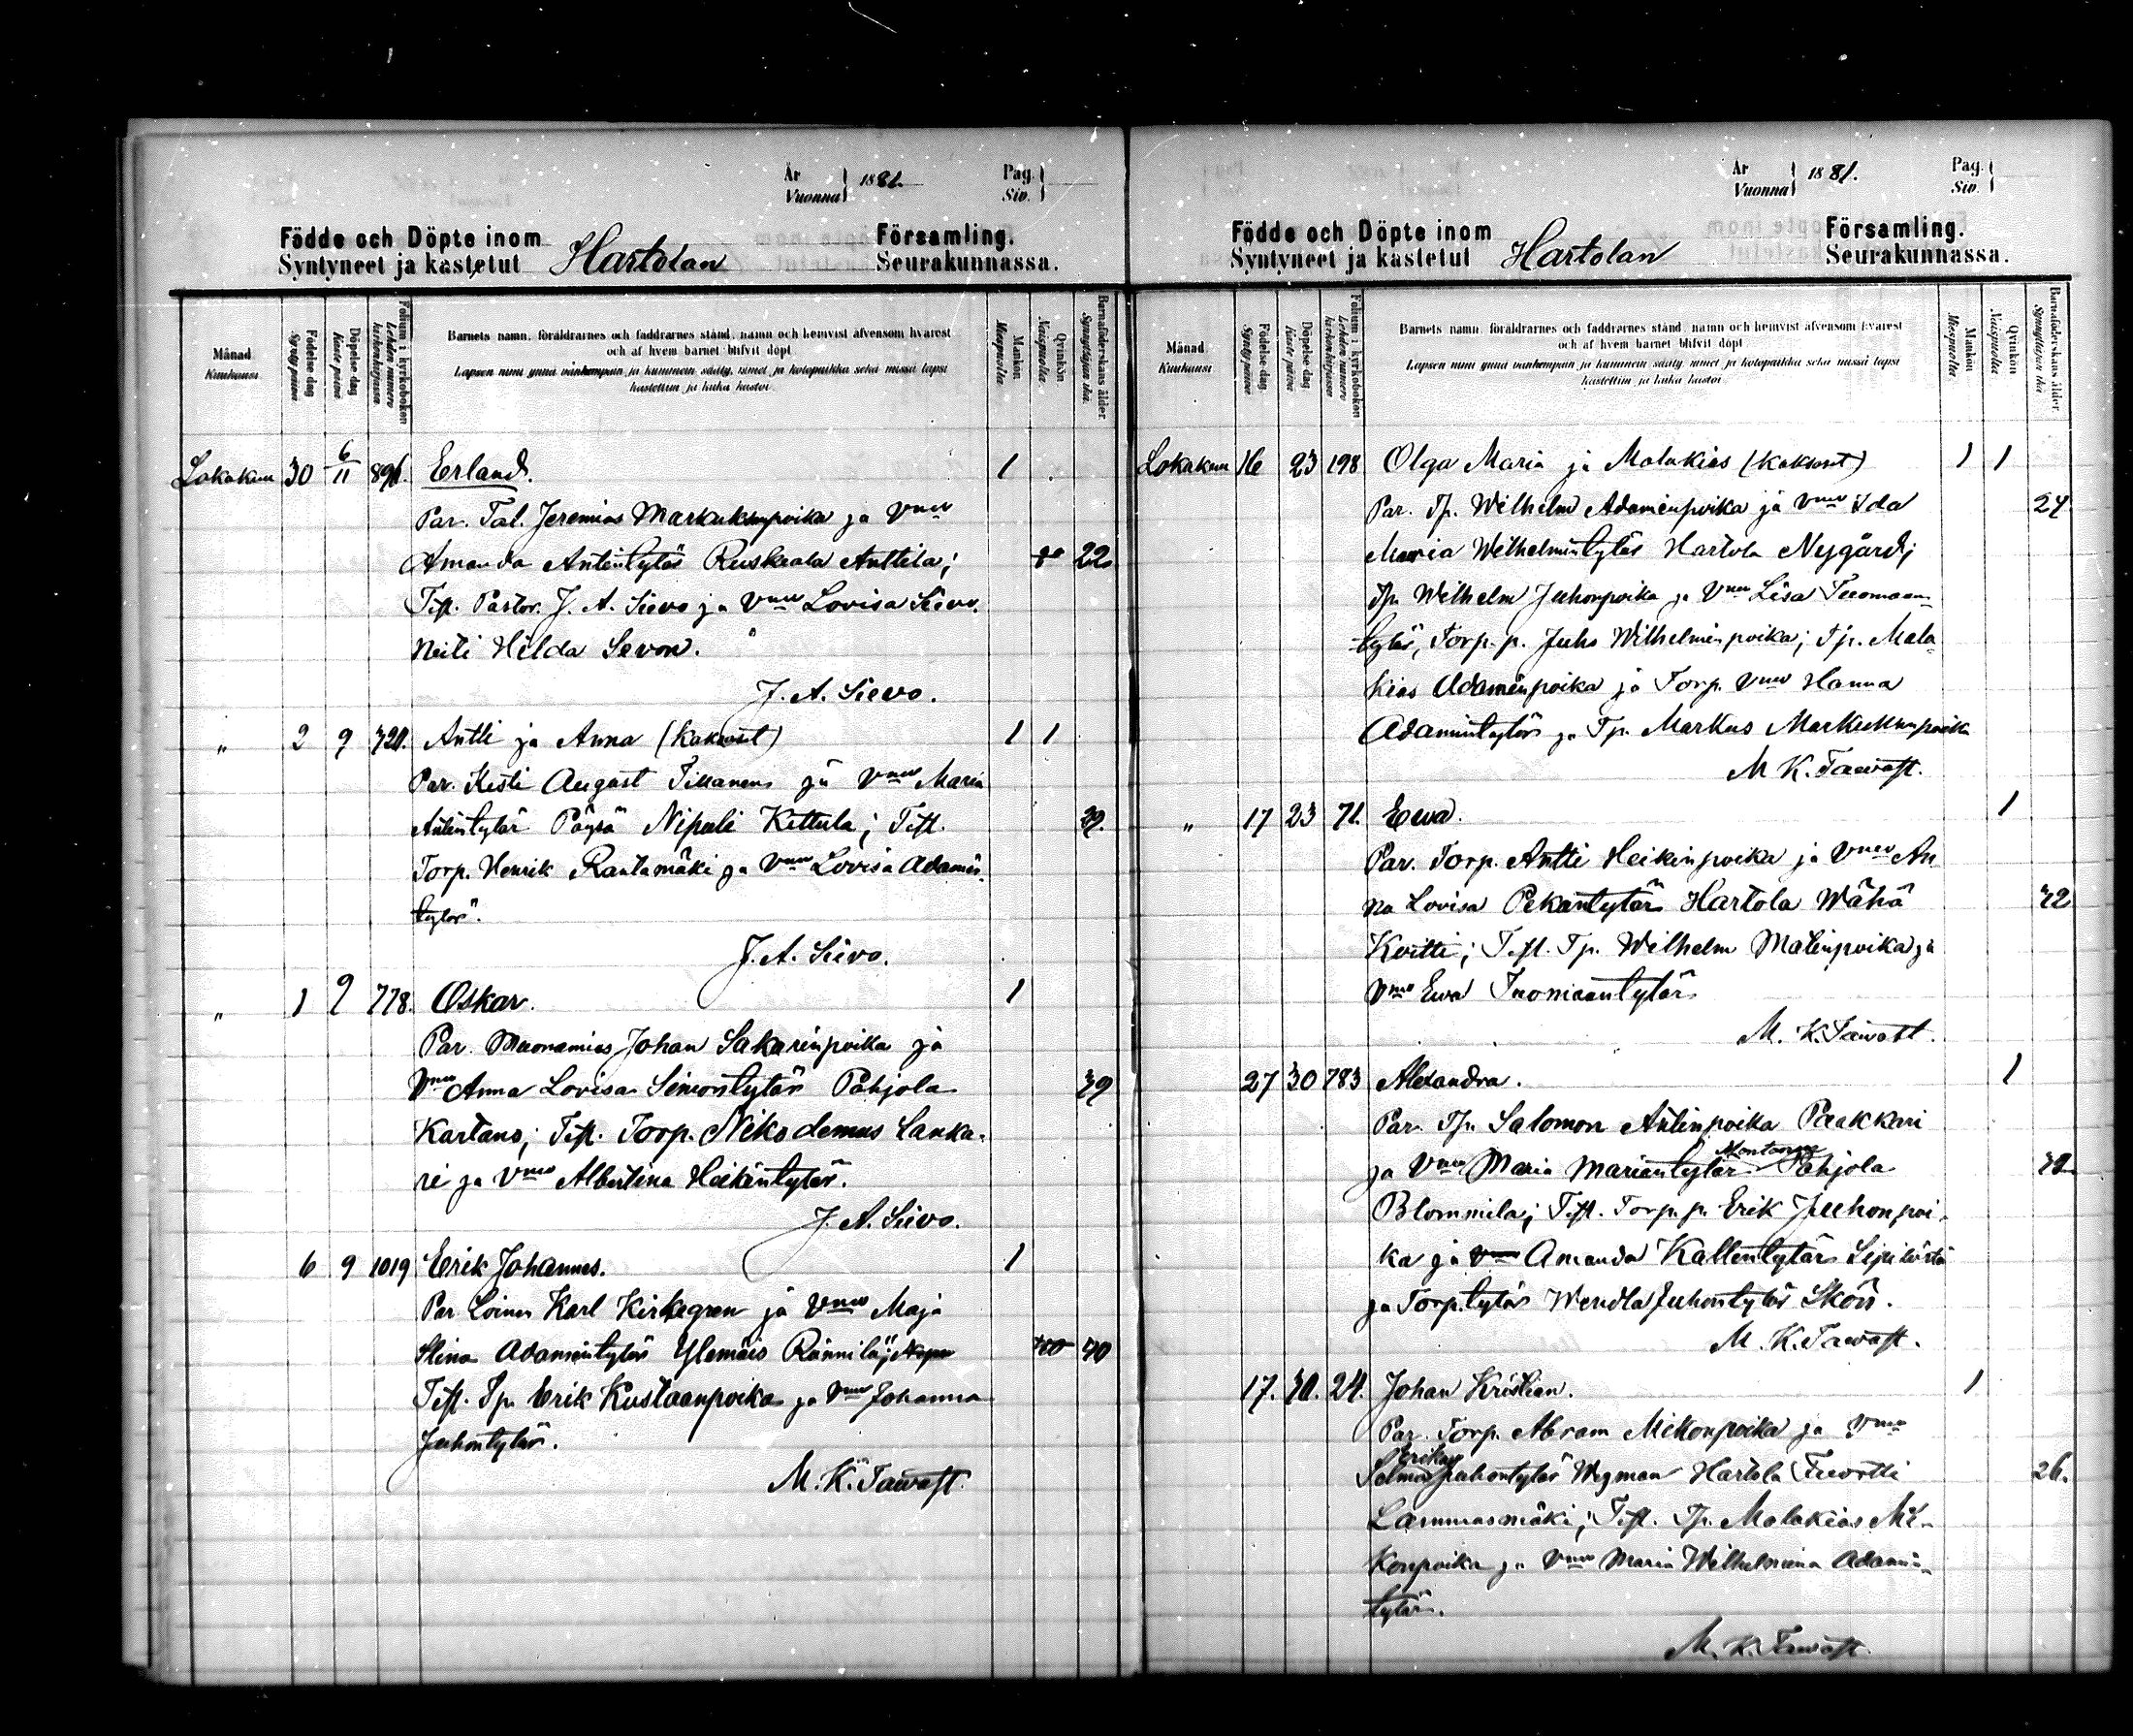 År Vuonna 1881. Pag. Siv.
Födde och Döpte inom Församling.
Syntyneet ja kastetut Hartolan Seurakunnassa.
Månad Kuukausi
Födelse dag Syntypäivä
Döpelse dag Kaste päivä
Folium i kyrkoboken Lehden numero kirkonkirjassa
Barnets namn, föräldrarnes och faddrarnes stånd, namn och hemvist äfvensom hvarest
och af hvem barnet blifvit döpt
Lapsen nimi ynnä vanhempain ja kummein sääty, nimet ja kotopaikka sekä missä lapsi
kastettiin ja kuka kastoi
Mankön Miespuolta
Qvinkön Naispuolta
Barnaföderskans ålder. Synnyttäjän ikä.
Lokakuu 30 6/11 896. Erland. 1
Par. Tal. Jeremias Markukunpoika ja Vmo
Amanda Antintytär Ruskeala Anttila; 22
Tist. Pastor. J. A. Sievo ja Vmo Lovisa Sievo.
Neiti Hilda Sevon.
J. A. Sievo.
" 2 9 721. Antti ja Anna (Kaksoist) 1 1
Par. Kesti August Tikkanens ja Vmo Maria
Antintytär Pöysä Nipuli Kittula; Tist. 39.
Torp. Henrik Rautamäki ja Vmo Lovisa Adamin-
tytär.
J. A. Sievo.
" 1 9 778. Oskar. 1
Par. Muonamies Johan Sakarinpoika ja
Vmo Anna Lovisa Simontytär Pohjola 39
Kartano; Tist. Torp. Nikodemus Lanka-
ri ja Vmo Albertina Heikintytär.
J. A. Sievo.
6 9 1019 Erik Johannes. 1
Par. Loinen Karl Kirkegren ja Vmo Maja
Stina Adamintytär Ylemäis Rännilä; 40
Tist. Tp. Erik Kustaanpoika ja Vmo Johanna
Juhontytär.
M. K. Tawast.
År Vuonna 1881. Pag. Siv.
Födde och Döpte inom Församling.
Syntyneet ja kastetut Hartolan Seurakunnassa.
Månad Kuukausi
Födelse dag Syntypäivä
Döpelse dag Kaste päivä
Folium i kyrkoboken Lehden numero kirkonkirjassa
Barnets namn, föräldrarnes och faddrarnes stånd, namn och hemvist äfvensom hvarest
och af hvem barnet blifvit döpt
Lapsen nimi ynnä vanhempain ja kummein sääty, nimet ja kotopaikka sekä missä lapsi
kastettiin ja kuka kastoi
Mankön Miespuolta.
Qvinkön Naispuolta
Barnaföderskans ålder. Synnyttäjän ikä
Lokakuu 16 23 198 Olga Maria ja Malakias (Kaksoist) 1 1
Par. Tp. Wilhelm Adaminpoika ja Vmo Ida 24
Maria Wilhelmintytär Hartola Nygård;
Tp. Wilhelm Juhonpoika ja Vmo Lisa Tuomaan-
tytär, Torp. p. Juho Wilhelminpoika; Tp. Mala-
kias Adaminpoika ja Torp. Vmo Hanna
Adamintytär ja Tp. Markus Markukunpoika
M K. Tawast.
" 17 23 71. Ewa. 1
Par. Torp. Antti Heikinpoika ja Vmo An-
na Lovisa Pekantytär Hartola Wähä 42
Koitti; Tist. Tp. Wilhelm Matinpoika ja
Vmo Ewa Tuomaantytär.
M. K. Tawast.
27 30 783 Alexandra. 1
Par. Tp. Salomon Antinpoika Paakkari
ja Vmo Maria Mariantytär Pohjola
Blommila; Tist. Torp. p. Erik Juhonpoi-
ka ja Amanda Kallentytär
ja Torp.tytär Wendla Juhontytär Skön.
M. K. Tawast.
17. 30. 24. Johan Kristian. 1
Par. Torp. Abram Mikonpoika ja Vmo
Erika
Selma Juhontytär Wegman Hartola 26.
Lammasmäki; Tist. Tp. Malakias Mi-
konpoika ja Vmo Maria Wilhelmina Adamin-
tytär.
M. K. Tawast.